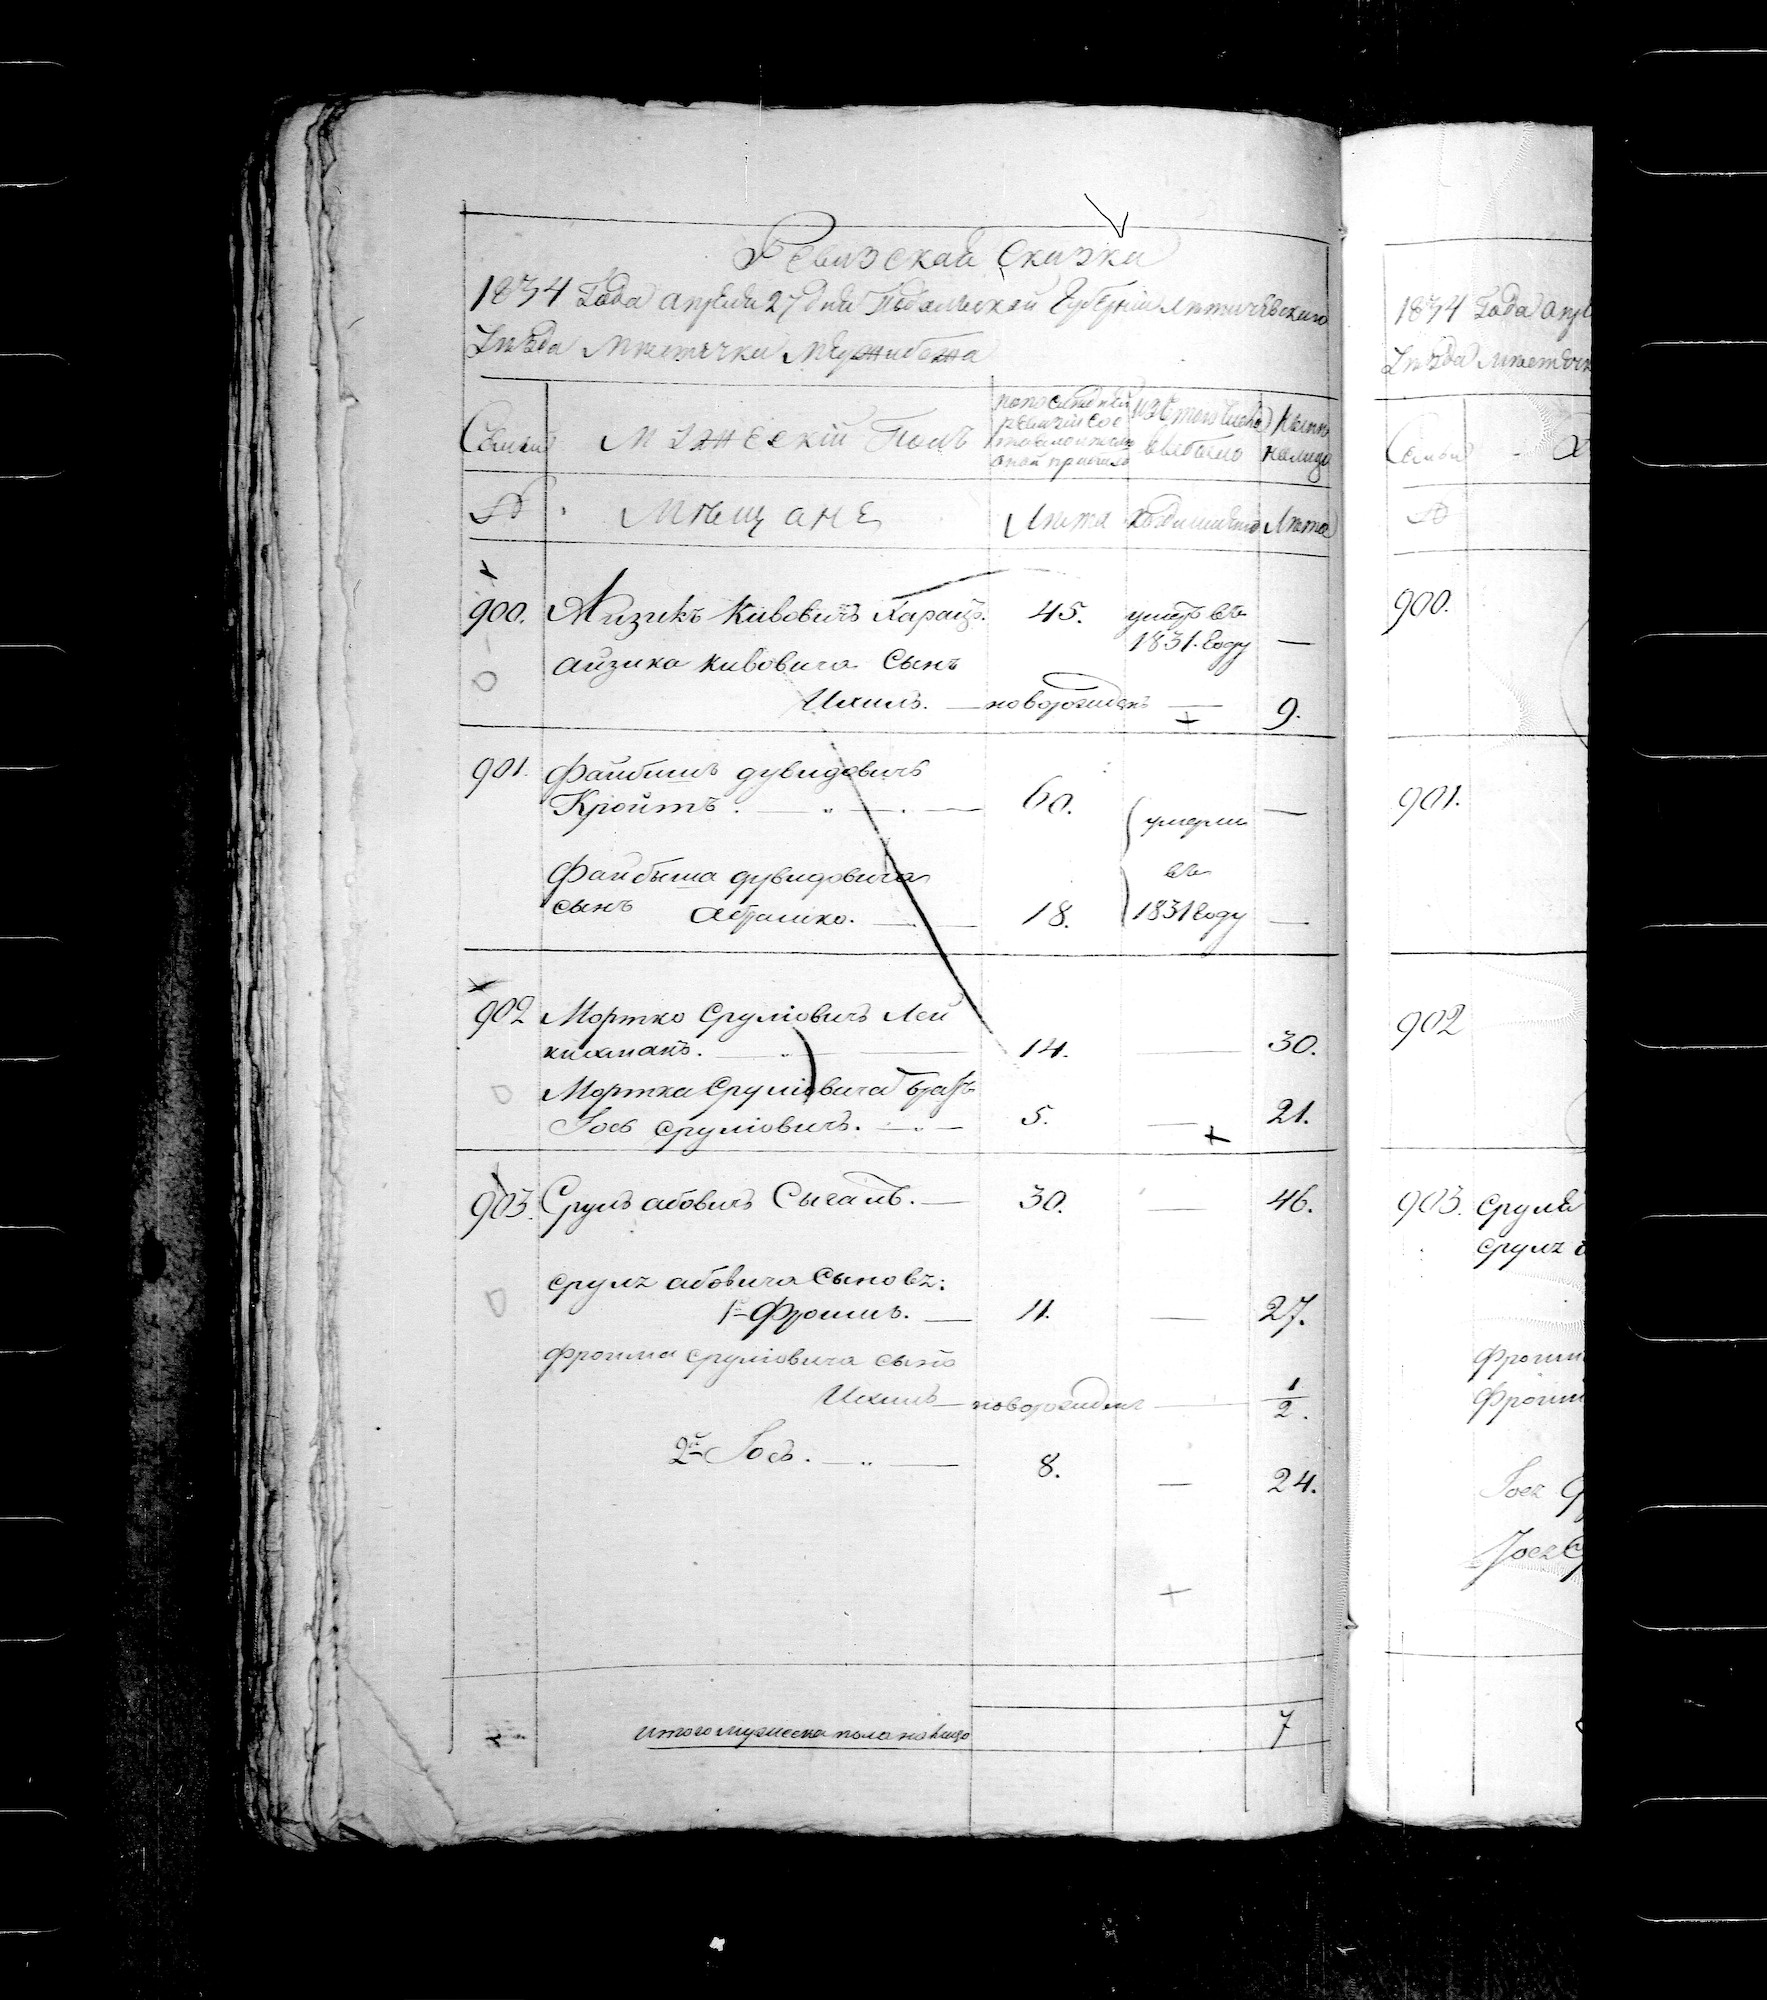 Ревизская Сказка
1834 Года апреля 27 дня Подольской Губернии Летичевского
Уезда Местечка Меджибожа
Семьи
Мужескій Полъ
Изъ того числа выбыло
Ныне на лицо
№
Мещане
Лета
Лета
900. Айзикъ Кивовичъ 45. умръ въ
1831. Году —
айзика кивовича Сынъ
Ихиль. — новорожденъ — 9.
901. Файбишъ дувидовичъ
Кройтъ. — „ — . — 60. умерли —
въ
Файбиша дувидовича
сынъ Абрамко. — 18. 1831 Году —
902 Мортко Сруліовичъ Лей
— „ — 14. — 30.
Мортка Сруліовича братъ
Іось сруліовичъ. — „ — 5. — 21.
903. Сруль абовичъ Сыганъ. — 30. — 46.
сруля абовича Сыновъя:
1й Фроимъ. — 11. — 27.
фроима сруліовича сынъ
Ихиль — новорожденъ — 1/2.
2й Іось. — „ — 8. — 24.
итого мужеска пола на лицо 7
1834 Года апре
Уезда местечк
Семьи
№
900.
901.
902
903. Сруля
сруля
Фроим
Фроим
Іося
Іося